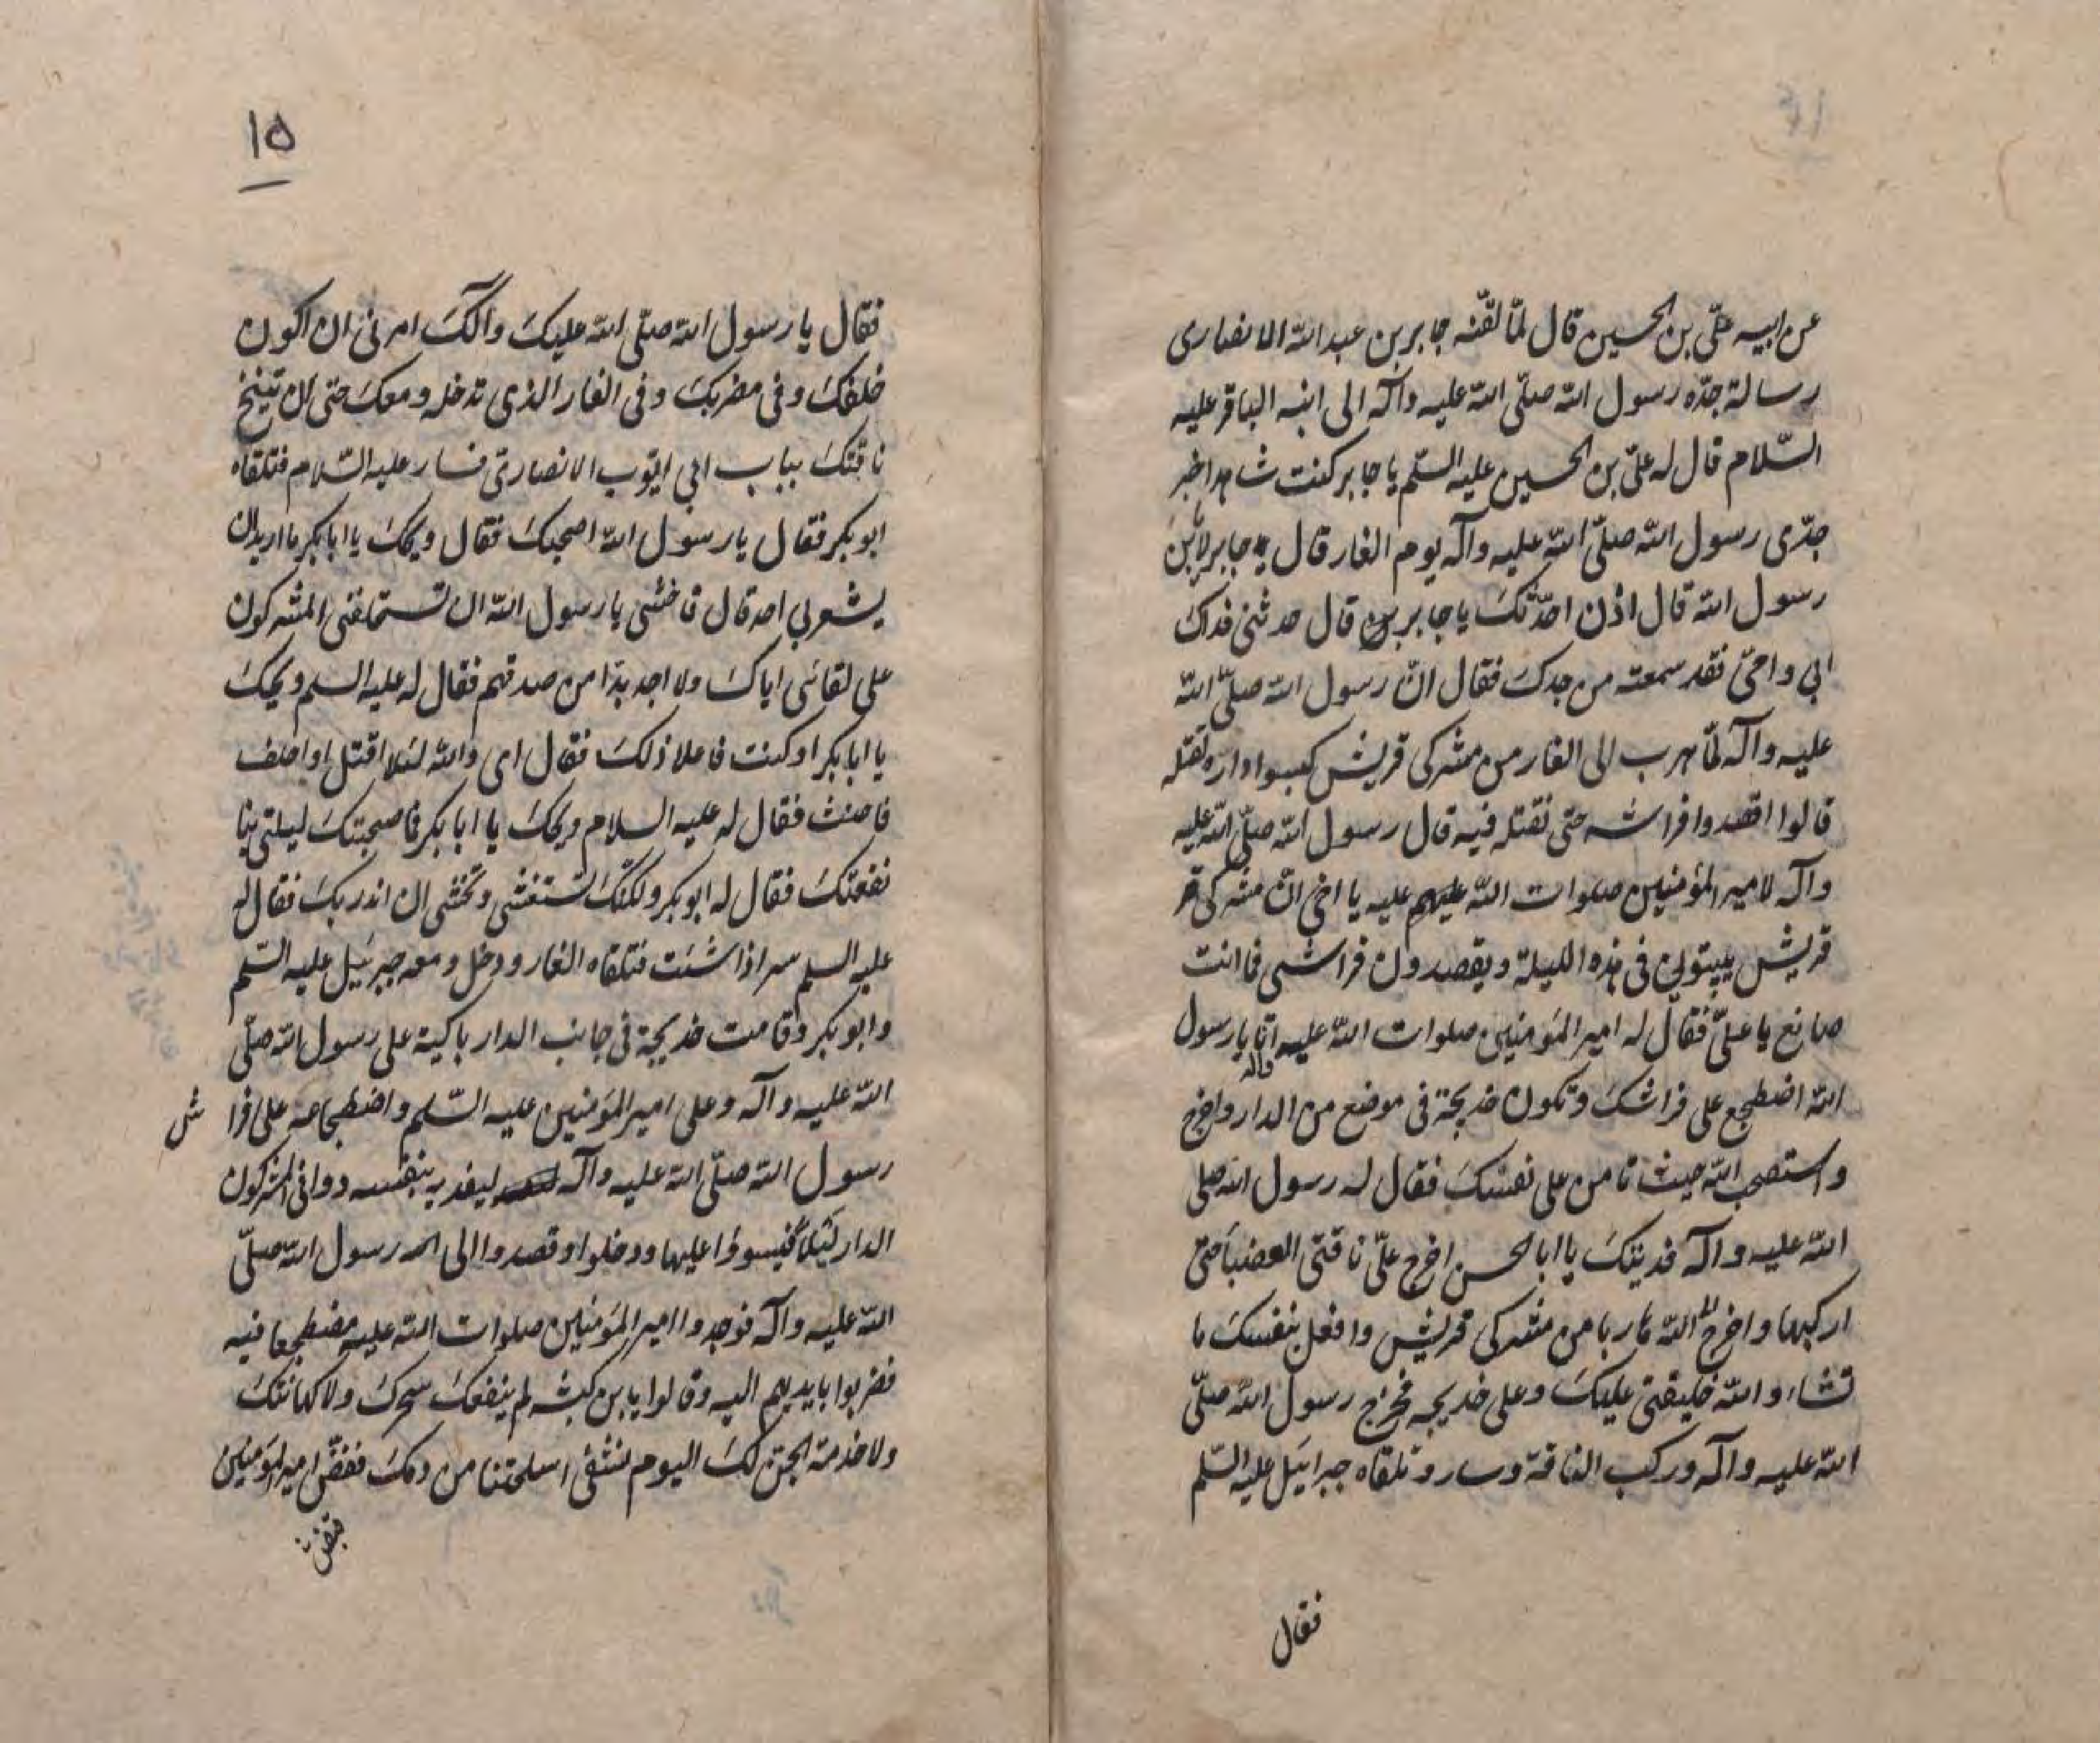 عن ابيه علىّ بن الحسين قال لمّا لقّنه جابر بن عبد الله الانصارى
رسالة جدّه رسول الله صلّى الله عليه وآله الى ابنه الباقر عليه
السّلام قال له علىّ بن الحسين عليه السّلم يا جابر كنت شاهدا خبر
جدّى رسول الله صلّى الله عليه وآله يوم الغار قال جابر لا يا بن
رسول الله قال اذن احدّثك يا جابر قال حدثنى فداك
ابى وامّى فقد سمعته من جدك فقال انّ رسول الله صلّى الله
عليه وآله لمّا هرب الى الغار من مشركى قريش كبسوا داره لقتله
قالوا اقصدوا فراشه حتى نقتله فيه قال رسول الله صلّى الله عليه
وآله لامير المؤمنين صلوات الله عليه يا اخى انّ مشركى
قريش يبيتونى فى هذه الليلة ويقصدون فراشى فما انت
صانع يا علىّ فقال له امير المؤمنين صلوات الله عليه انا يا رسول
الله اضطجع على فراشك وتكون خديجة فى موضع من الدار واخرج
واستصحب الله حيث تامن على نفسك فقال له رسول الله صلى
الله عليه وآله فديتك يا ابا الحسن اخرج علىّ ناقتى العضباء حتى
اركبها واخرج الى الله هاربا من مشركى قريش وافعل بنفسك ما
تشاء والله خليفتى عليك وعلى خديجه فخرج رسول الله صلّى
الله عليه وآله وركب الناقة وسار وتلقاه جبرائيل عليه السّلم
فقال
١٥
فقال يا رسول الله صلّى الله عليك وآلك امرنى ان اكون
خلفك وفى مضربك وفى الغار الذى تدخله ومعك حتى ان تنيخ
ناقتك بباب ابى ايّوب الانصارىّ فسار عليه السّلام فتلقاه
ابو بكر فقال يا رسول الله اصحبك فقال ويحك يا ابا بكر ما اريد ان
يشعر بى احد قال فاخشى يا رسول الله ان تستحلفنى المشركون
على لقائى اياك ولا اجد بدّا من صدقهم فقال له عليه السلم ويحك
يا ابا بكر او كنت فاعلا ذلك فقال اى والله لئلا اقتل او احلف
فاحنث فقال له عليه السلام ويحك يا ابا بكر فما صحبتك ليلتى بنا
نفعتك فقال له ابو بكر ولكنّك تستغشى وتخشى ان انذر بك فقال له
عليه السلم سر اذا شئت فتلقاه الغار ودخل ومعه جبرئيل عليه السّلم
وابو بكر وقامت خديجة فى جانب الدار باكية على رسول الله صلّى
الله عليه وآله وعلى امير المؤمنين عليه السّلم واضطجاعه على فرا ش
رسول الله صلّى الله عليه وآله ليفديه بنفسه ووافى المشركون
الدار ليلا فتسوروا عليها ودخلوا وقصدوا الى رسول الله صلّى
الله عليه وآله فوجدوا امير المؤمنين صلوات الله عليه مضطجعا فيه
فضربوا بايديهم اليه وقالوا يا بن كبشه لم ينفعك سحرك ولا كهانتك
ولا خدمة الجن لك اليوم نسقى اسلحتنا من دمك فنفض امير المؤمنين